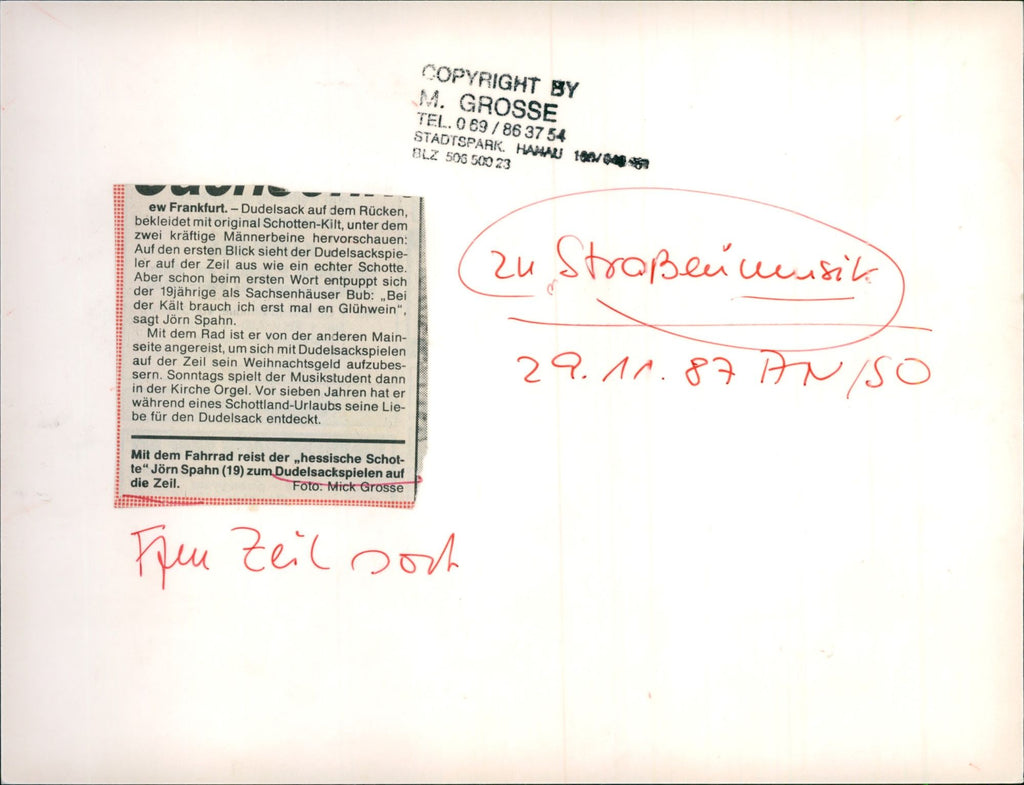 COPYRIGHT BY
M. GROSSE
TEL. 0 69 / 86 37 54
STADTSPARK. HANAU
BLZ 506 500 23
ew Frankfurt. – Dudelsack auf dem Rücken,
bekleidet mit original Schotten-Kilt, unter dem
zwei kräftige Männerbeine hervorschauen:
Auf den ersten Blick sieht der Dudelsackspie-
ler auf der Zeil aus wie ein echter Schotte.
Aber schon beim ersten Wort entpuppt sich
der 19jährige als Sachsenhäuser Bub: „Bei
der Kält brauch ich erst mal en Glühwein“,
sagt Jörn Spahn.
Mit dem Rad ist er von der anderen Main-
seite angereist, um sich mit Dudelsackspielen
auf der Zeil sein Weihnachtsgeld aufzubes-
sern. Sonntags spielt der Musikstudent dann
in der Kirche Orgel. Vor sieben Jahren hat er
während eines Schottland-Urlaubs seine Lie-
be für den Dudelsack entdeckt.
Mit dem Fahrrad reist der „hessische Schot-
te“ Jörn Spahn (19) zum Dudelsackspielen auf
die Zeil. Foto: Mick Grosse
zu Straßenmusik
29.11.87 AN/SO
Zeil